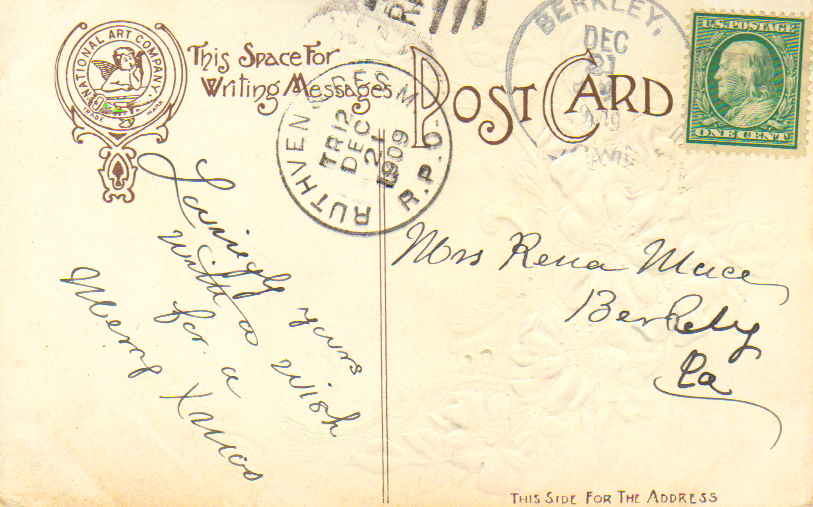 NATIONAL ART COMPANY.
TRADE MARK
This Space For
Writing Messages
POST CARD
BERKLEY,
DEC
21
U.S. POSTAGE
ONE CENT
RUTHVEN & DES M.
R.P.O.
TR 12
DEC
21
1909
Lovingly yours
with a wish
for a
Merry Xmas
Mrs Rena Mace
Berkely
Ia
THIS SIDE FOR THE ADDRESS